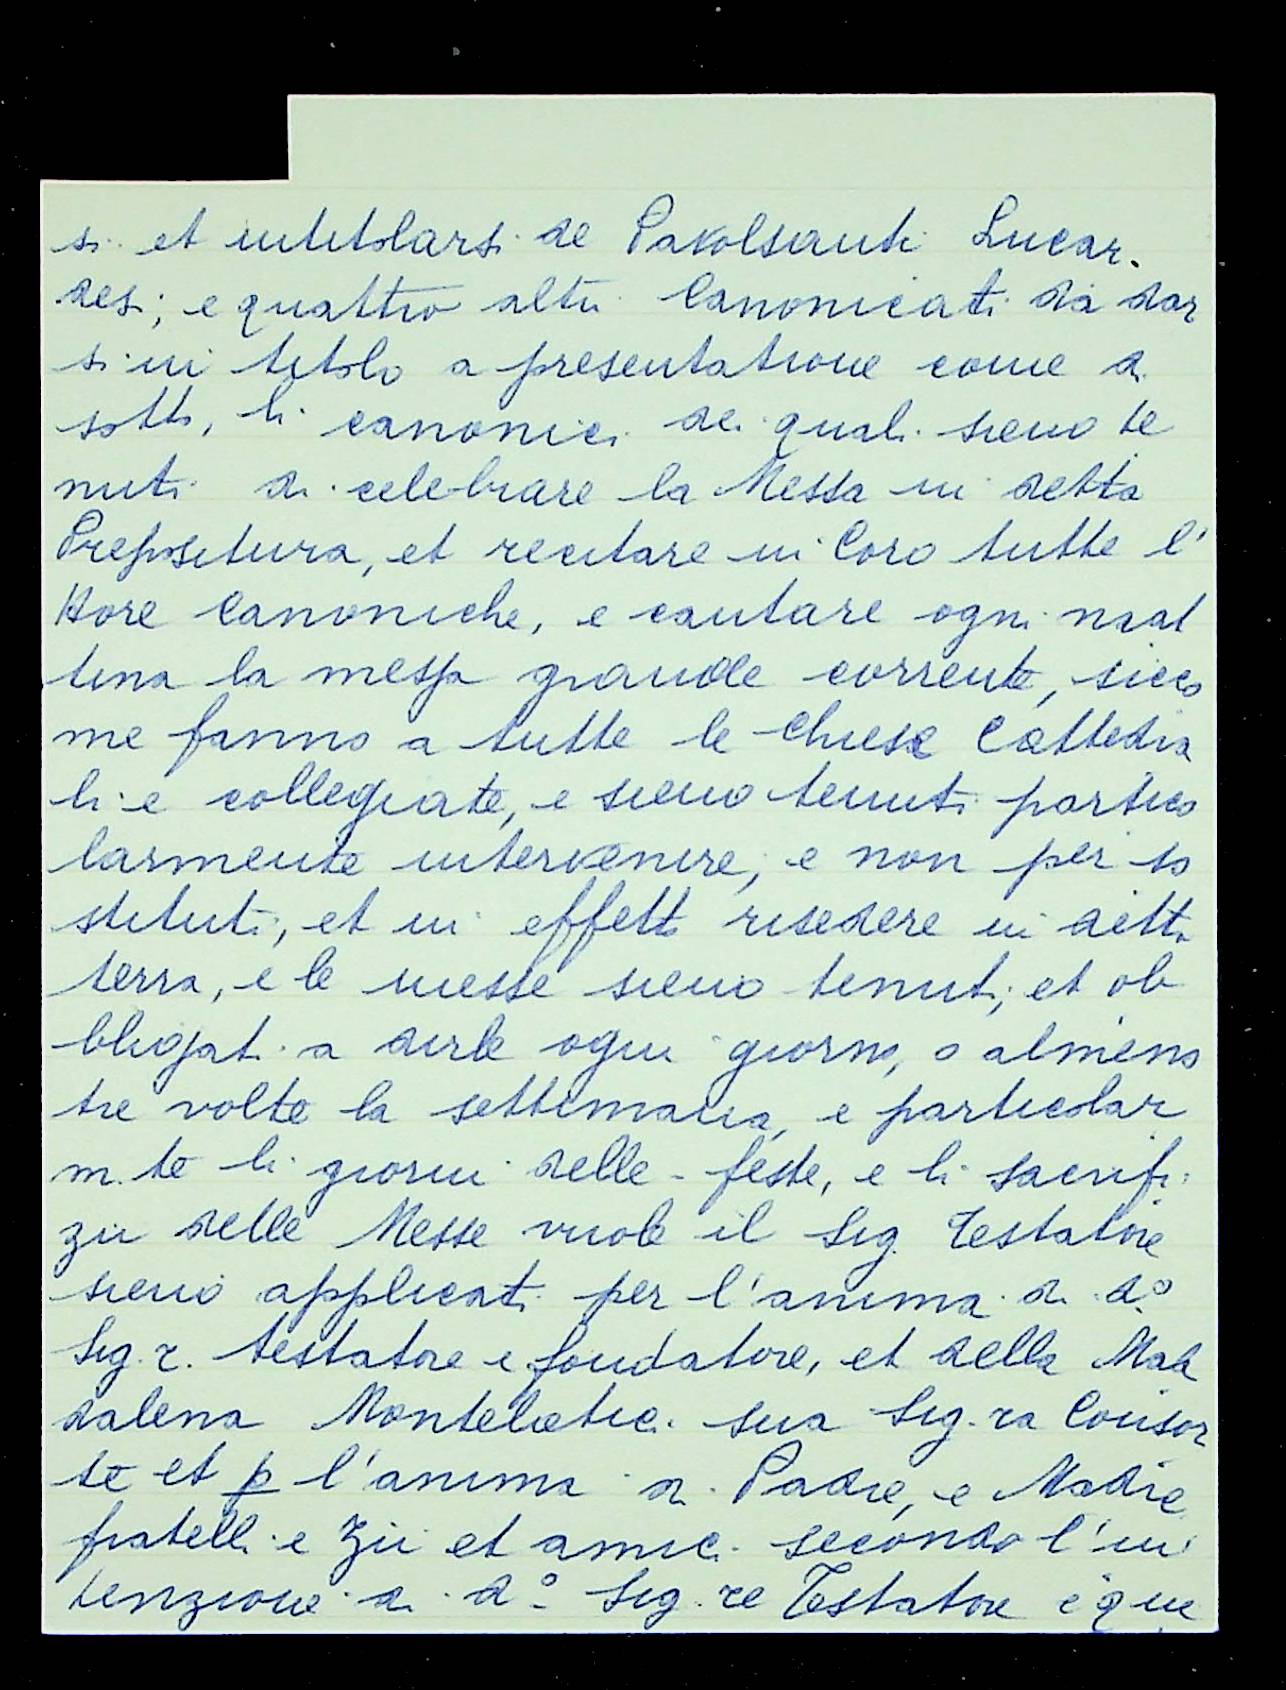 si et intitolarsi de Pavolsanti Lucar-
desi; e quattro altri Canonicati da dar
si in titolo a presentatione come di
sotto, li canonici dei quali sieno te
nuti di celebrare la Messa in detta
Prepositura, et recitare in Coro tutte l'
Hore Canoniche, e cantare ogni mat
tina la messa grande corrente, sicco
me fanno a tutte le Chiese Cattedra
li e collegiate, e sieno tenuti partico
larmente intervenire, e non per so
stituti, et in effetto risedere in detta
terra, e le messe sieno tenuti, et ob
bligati a dirle ogni giorno, o almeno
tre volte la settimana, e particolar
m.te li giorni delle feste, e li sacrifi
zii delle Messe vuole il Sig. Testatore
sieno applicati per l'anima di d.o
Sig.r. testatore e fondatore, et della Mad
dalena Montelatici sua Sig.ra Consor
te et p l'anima di Padre, e Madre
fratelli e Zii et amici secondo l'in
tenzione di d.o Sig.re Testatore e que